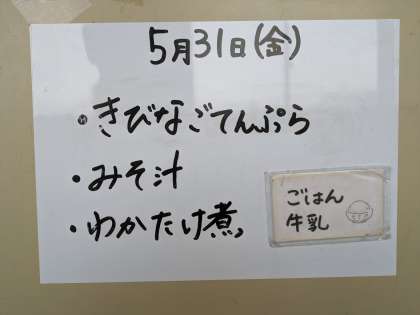 5月31日(金)
・きびなごてんぷら
・みそ汁
・わかたけ煮
ごはん
牛乳